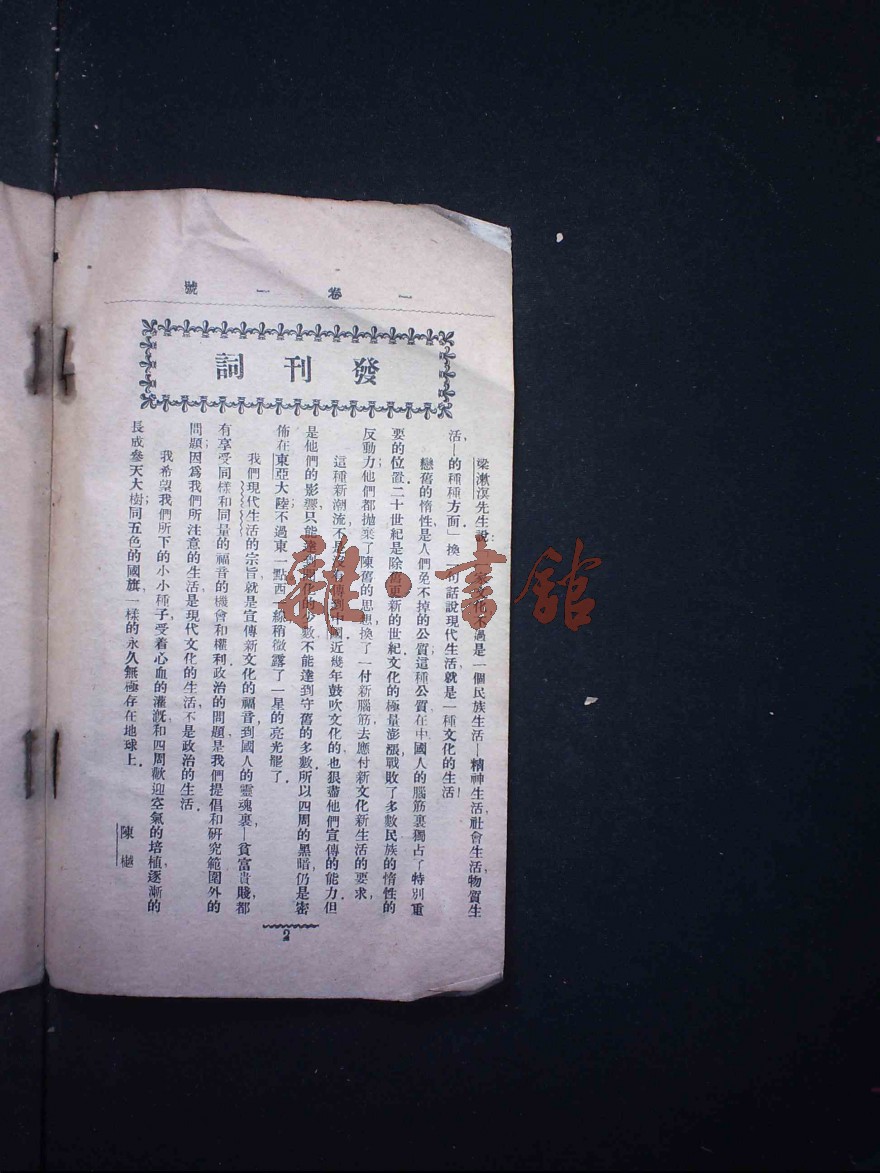 一卷一號
發刊詞
梁漱溟先生說:家文化不過是一個民族生活—精神生活,社會生活,物質生
活,—的種種方面」換句話說現代生活就是一種文化的生活!
戀舊的惰性是人們免不掉的公質這種公質在中國人的腦筋裏獨占了特別重
要的位置.二十世紀是除舊更新的世紀文化的極量澎漲,戰敗了多數民族的惰性的
反動力他們都拋棄了陳舊的思想換了一付新腦筋去應付新文化新生活的要求,
這種新潮流不是沒有傳到中國.近幾年鼓吹文化的也狠盡他們宣傳的能力.但
是他們的影響,只能達到開化的少數不能達到守舊的多數所以四周的黑暗仍是密
佈在東亞大陸;不過東一點西一線稍微露了一星的亮光罷了.
我們現代生活的宗旨就是宣傳新文化的福音到國人的靈魂裏—貧富貴賤都
有享受同樣和同量的福音的機會和權利政治的問題是我們提倡和研究範圍外的
問題;因為我們所注意的生活是現代文化的生活,不是政治的生活.
我希望我們所下的小小種子,受着心血的灌溉和四周歡迎空氣的培植逐漸的
長成參天大樹;同五色的國旗一樣的永久無極存在地球上.
陳樾
2
雜·書館